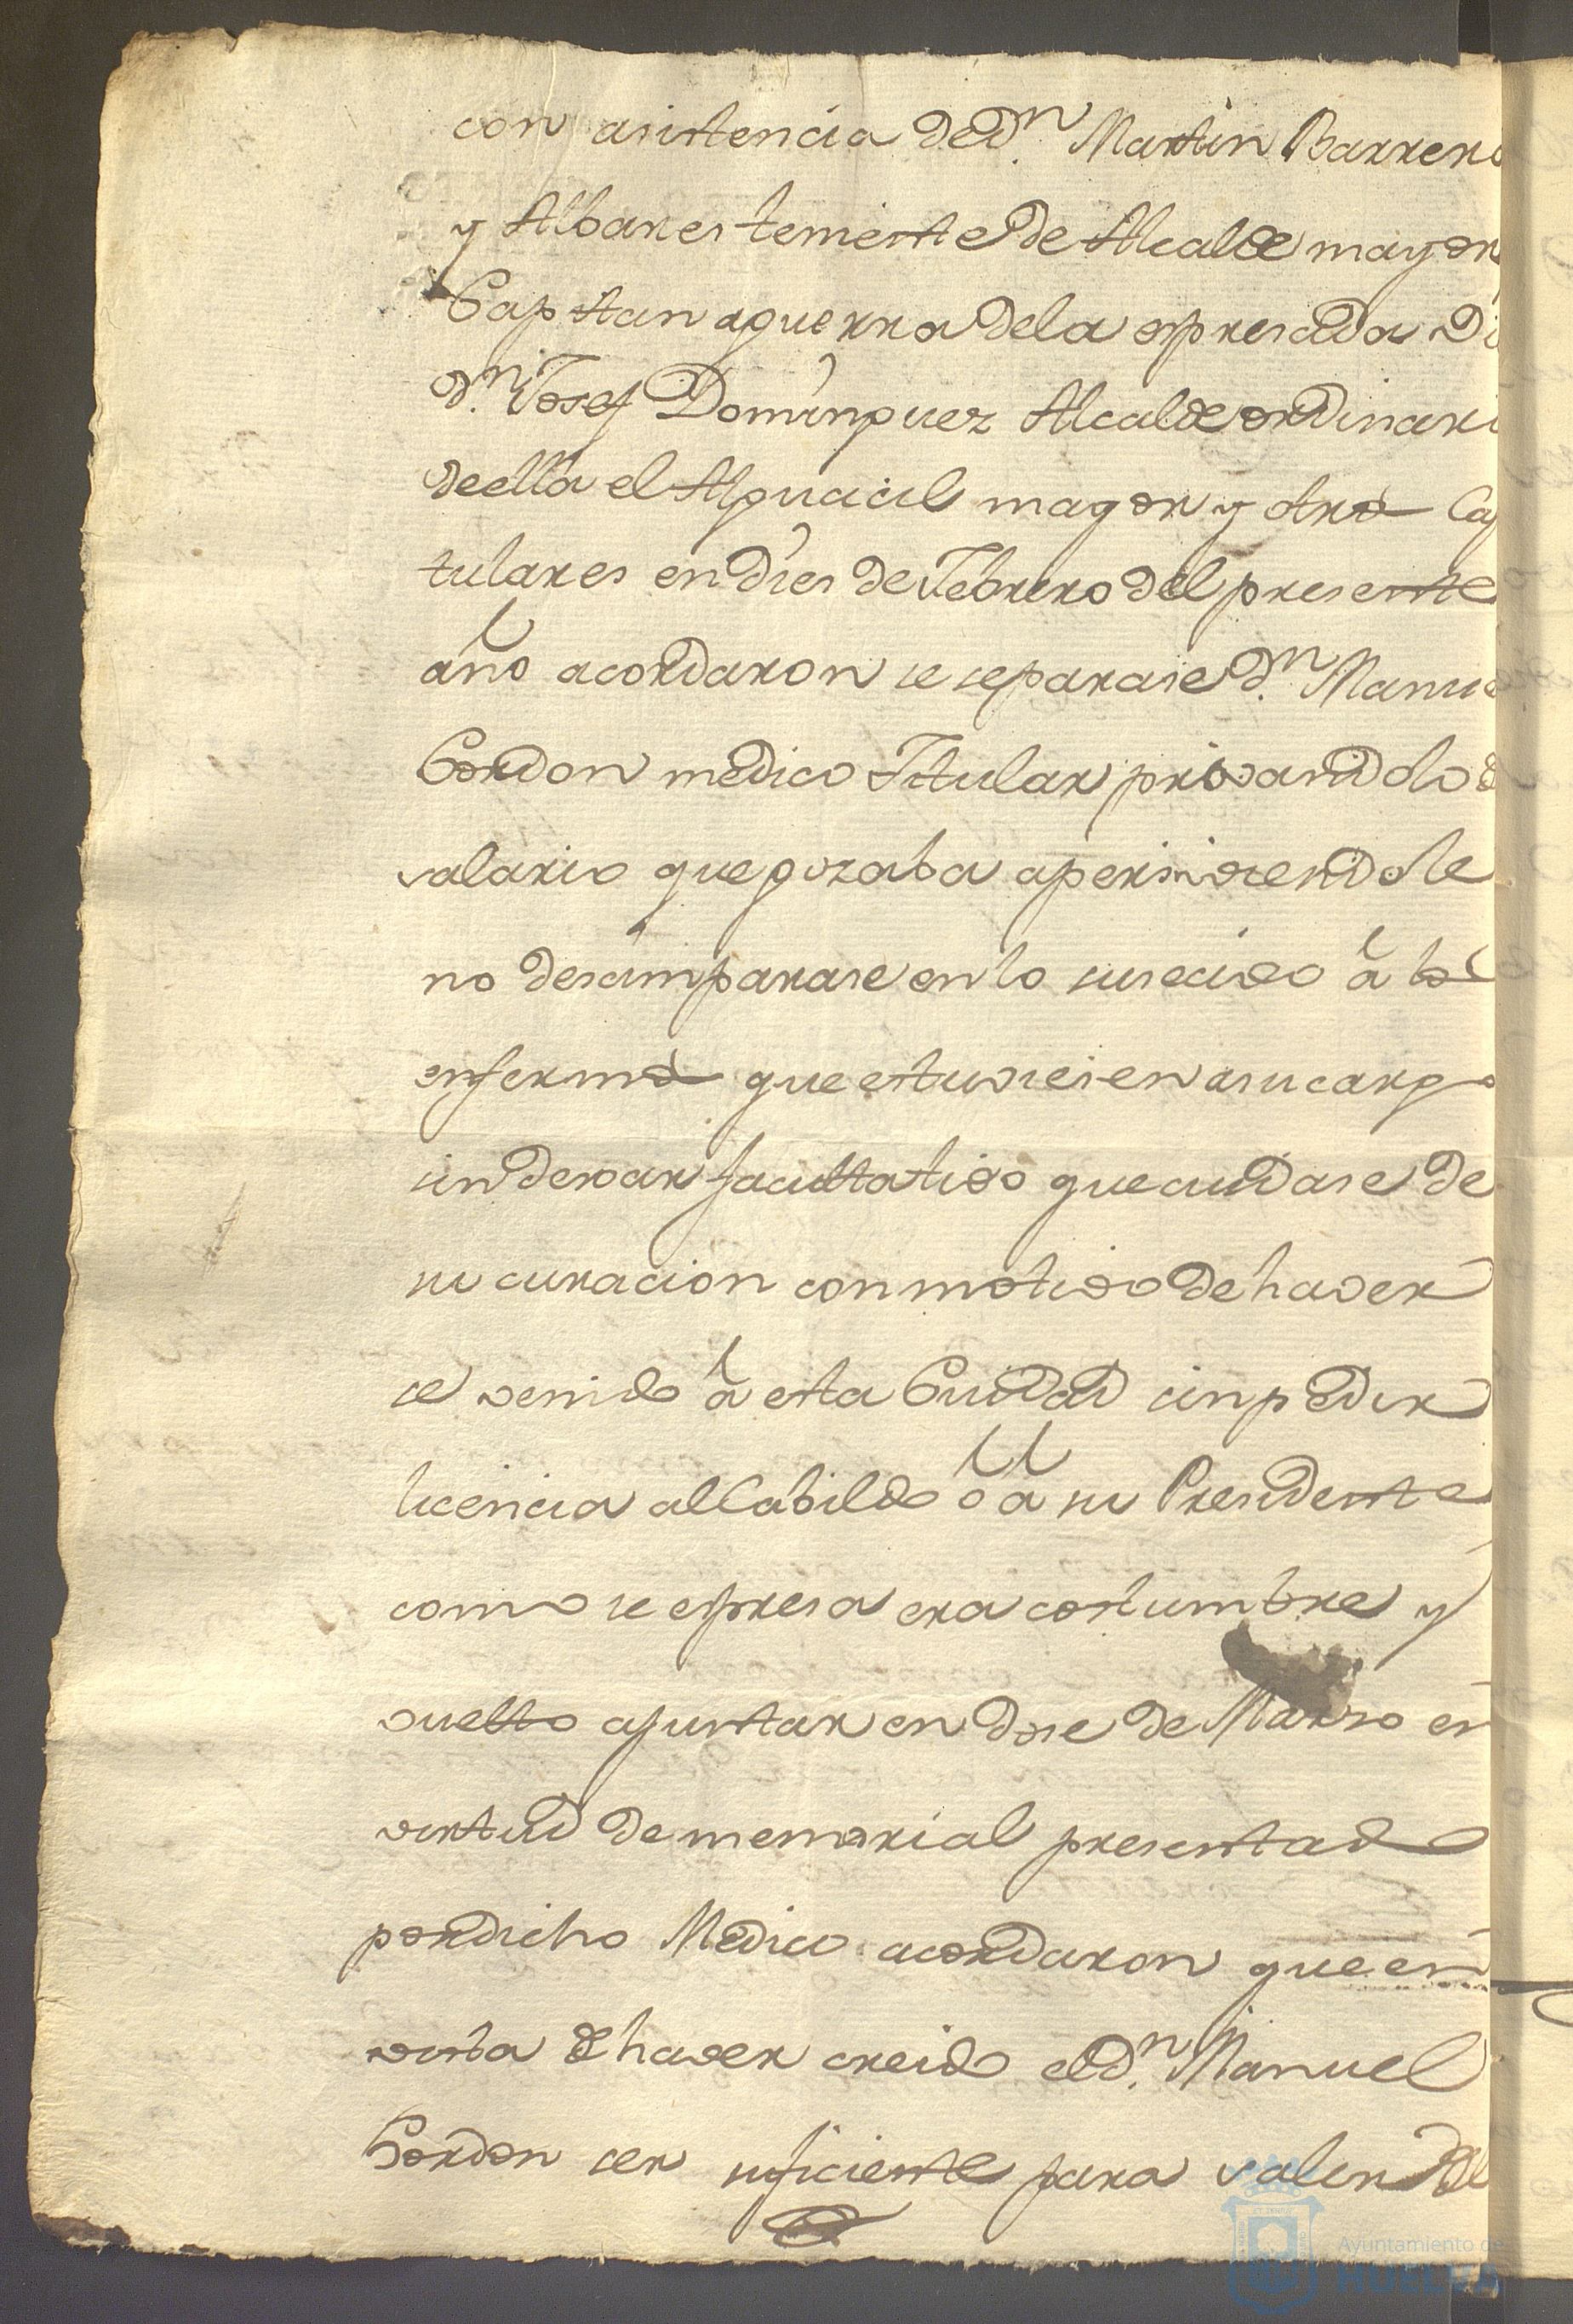 con asistencia de Dn. Martin Barrero
y Albares teniente de Alcalde mayor
Capitan aguerra dela espresada
Dn. Josef Dominguez Alcalde ordinari
deella el Alguacil mayor y otros Cap
tulares en dies de Febrero del presente
año acordaron se separase Dn. Manue
Gordon medico Titular privandolo d
salario que gozaba apersiviendole
no desamparase en lo susecivo à los
enfermos que estuviesen asu cargo
sin dexar facultativo que cuidase de
su curacion con motivo de haver
se venido à esta Ciudad sin pedir
licencia al Cabildo ò à su Presidente
como se espresa era costumbre y
vuelto ajuntar en dose de Marzo en
virtud de memorial presentado
por dicho Medico acordaron que en
vista de haver creido el Dn. Manuel
Gordon ser suficiente para salir del
Ayuntamiento de
HUELVA